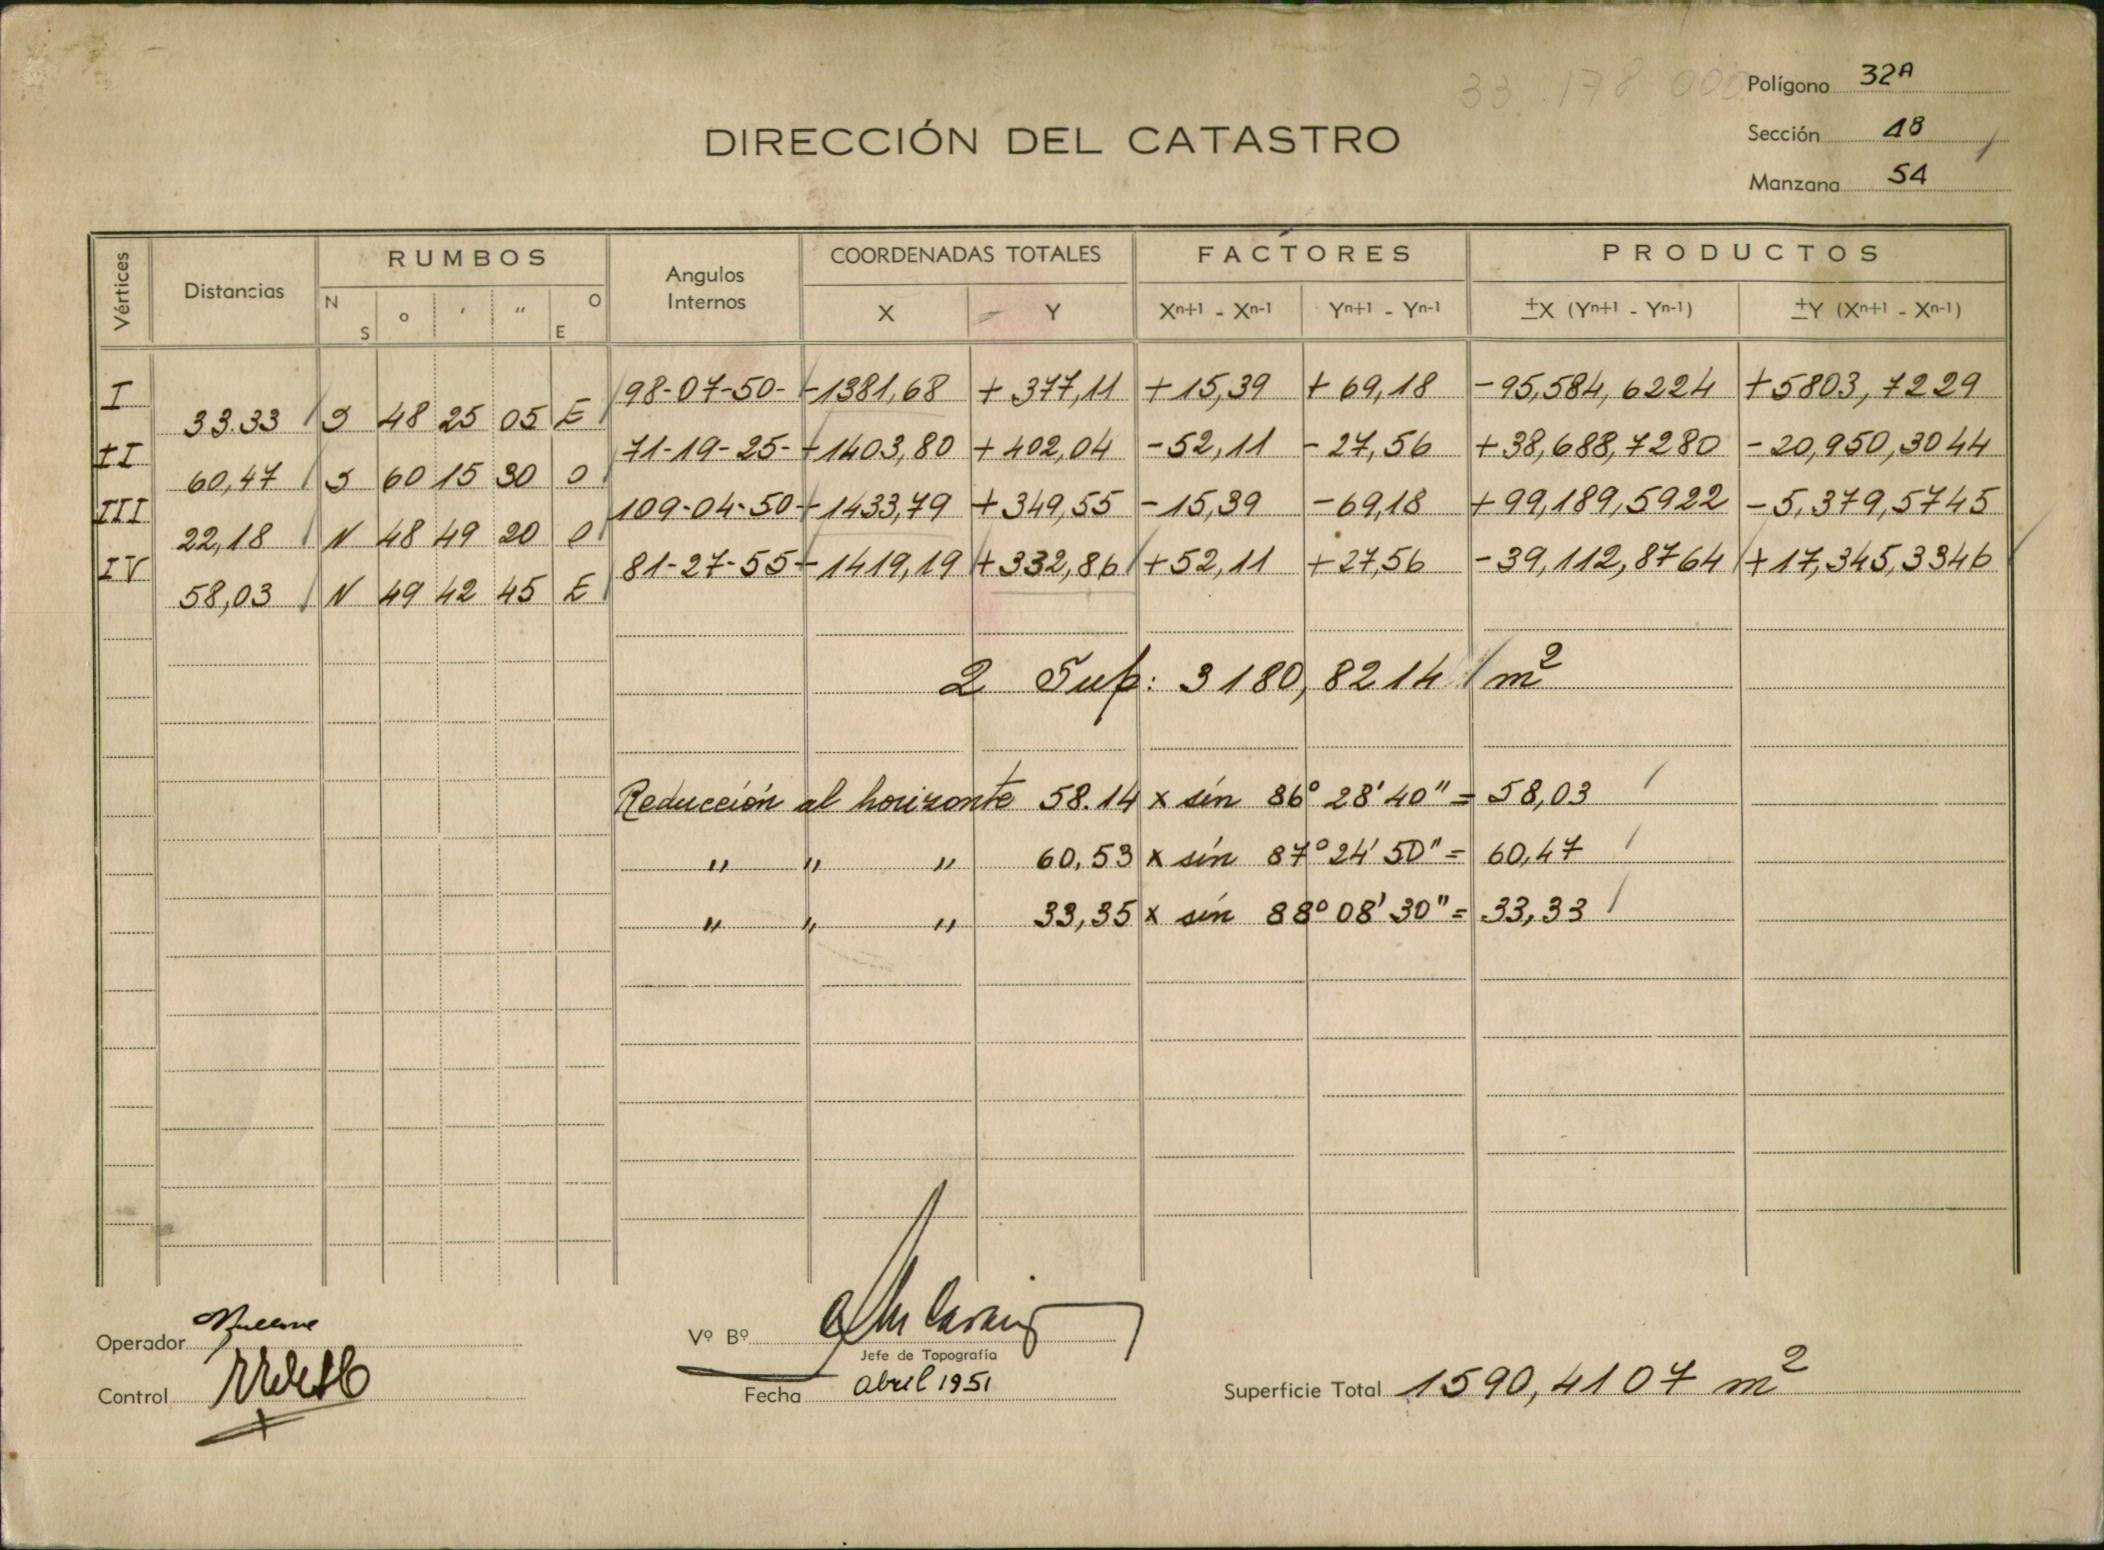 33.178 000
Polígono 32A
DIRECCIÓN DEL CATASTRO
Sección 18
Manzana 54
Vértices Distancias RUMBOS Angulos Internos COORDENADAS TOTALES FACTORES PRODUCTOS
N S o ' " E O X Y Xn+1 - Xn-1 Yn+1 - Yn-1 ±X (Yn+1 - Yn-1) ±Y (Xn+1 - Xn-1)
I 98-07-50- -1381,68 +377,11 +15,39 +69,18 -95,584,6224 +5803,7229
33.33 S 48 25 05 E
II 71-19-25- +1403,80 +402,04 -52,11 -27,56 +38,688,7280 -20,950,3044
60,47 S 60 15 30 O
III 109-04-50 +1433,79 +349,55 -15,39 -69,18 +99,189,5922 -5,379,5745
22,18 N 48 49 20 O
IV 81-27-55 -1419,19 +332,86 +52,11 +27,56 -39,112,8764 +17,345,3346
58,03 N 49 42 45 E
2 Sup: 3180,8214 m²
Reducción al horizonte 58.14 x sin 86° 28' 40" = 58,03
" " " 60.53 x sin 87° 24' 50" = 60,47
" " " 33,35 x sin 88° 08' 30" = 33,33
Operador
Vº Bº
Jefe de Topografía
Control
Fecha abril 1951
Superficie Total 1590,4107 m²